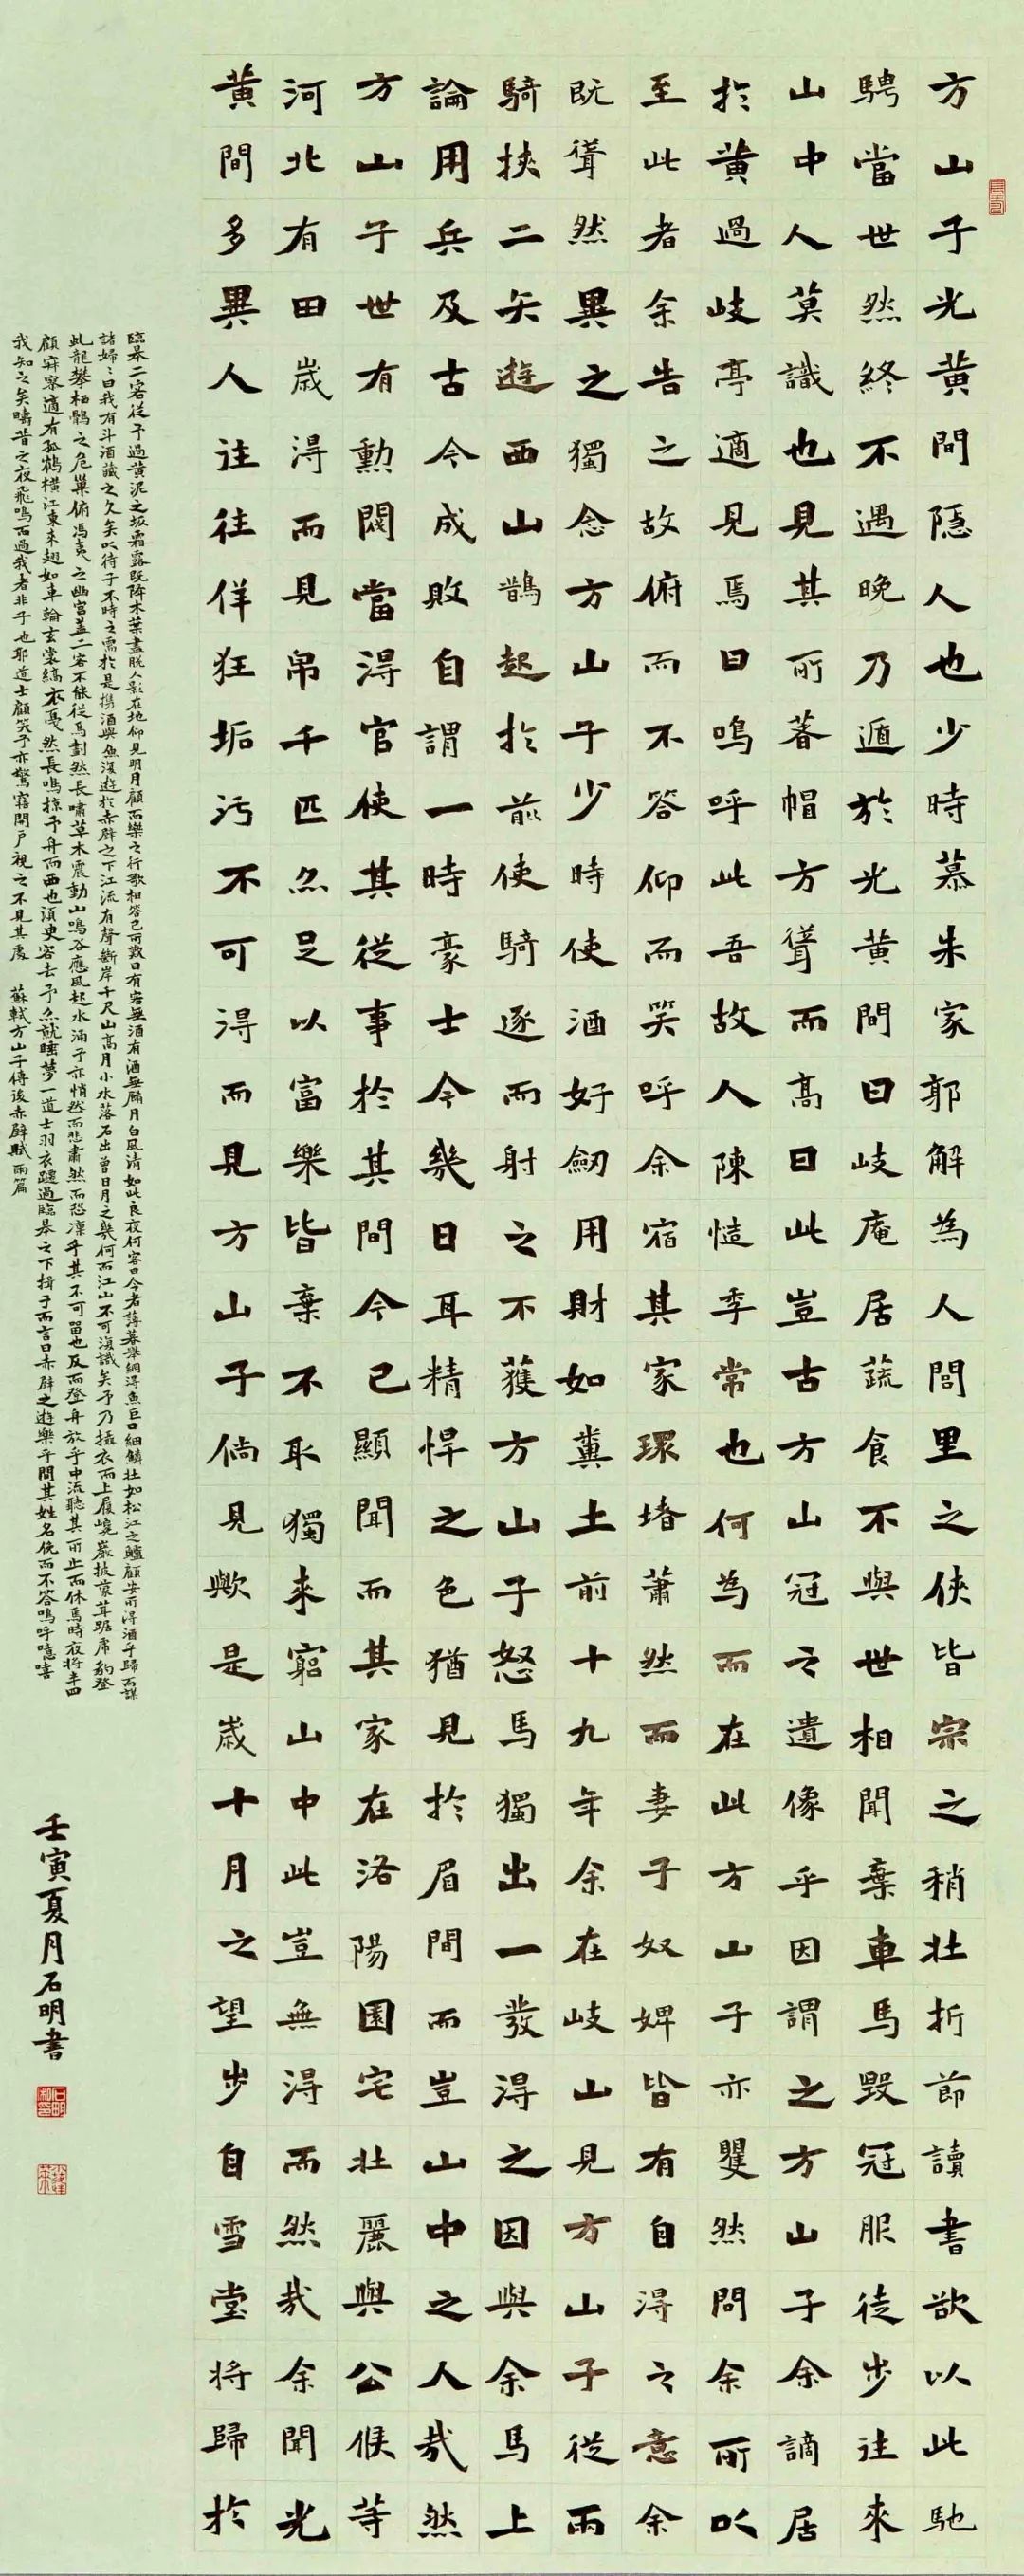 方山子光黃間隱人也少時慕朱家郭解為人閭里之俠皆宗之稍壯折節讀書欲以此馳
騁當世然終不遇晚乃遁於光黃間曰岐庵居蔬食不與世相聞棄車馬毀冠服徒步往來
山中人莫識也見其所著帽方聳而高曰此豈古方山冠之遺像乎因謂之方山子余謫居
於黃過岐亭適見焉曰嗚呼此吾故人陳慥季常也何為而在此方山子亦矍然問余所以
至此者余告之故俯而不答仰而笑呼余宿其家環堵蕭然而妻子奴婢皆有自得之意余
既聳然異之獨念方山子少時使酒好劒用財如糞土前十九年余在岐山見方山子從兩
騎挾二矢遊西山鵲起於前使騎逐而射之不獲方山子怒馬獨出一發得之因與余馬上
論用兵及古今成敗自謂一時豪士今幾日耳精悍之色猶見於眉間而豈山中之人哉然
方山子世有勳閥當得官使其從事於其間今已顯聞而其家在洛陽園宅壯麗與公侯等
河北有田歲得而見帛千匹亦足以富樂皆棄不取獨來窮山中此豈無得而然哉余聞光
黃間多異人往往佯狂垢污不可得而見方山子倘見歟是歲十月之望步自雪堂將歸於
臨皋二客從予過黃泥之坂霜露既降木葉盡脫人影在地仰見明月顧而樂之行歌相答已而歎曰有客無酒有酒無餚月白風清如此良夜何客曰今者薄暮舉網得魚巨口細鱗壯如松江之鱸顧安所得酒乎歸而謀
諸婦婦曰我有斗酒藏之久矣以待子不時之需於是攜酒與魚復遊於赤壁之下江流有聲斷岸千尺山高月小水落石出曾日月之幾何而江山不可復識矣予乃攝衣而上履巉巖披蒙茸踞虎豹登
虬龍攀栖鶻之危巢俯馮夷之幽宮蓋二客不能從焉劃然長嘯草木震動山鳴谷應風起水涌予亦悄然而悲肅然而恐凜乎其不可留也反而登舟放乎中流聽其所止而休焉時夜將半四
顧寂寥適有孤鶴橫江東來翅如車輪玄裳縞衣戛然長鳴掠予舟而西也須臾客去予亦就睡夢一道士羽衣蹁躚過臨皋之下揖予而言曰赤壁之遊樂乎問其姓名俛而不答嗚呼噫嘻
我知之矣疇昔之夜飛鳴而過我者非子也耶道士顧笑予亦驚寤開戶視之不見其處 蘇軾方山子傳後赤壁賦兩篇
壬寅夏月石明書